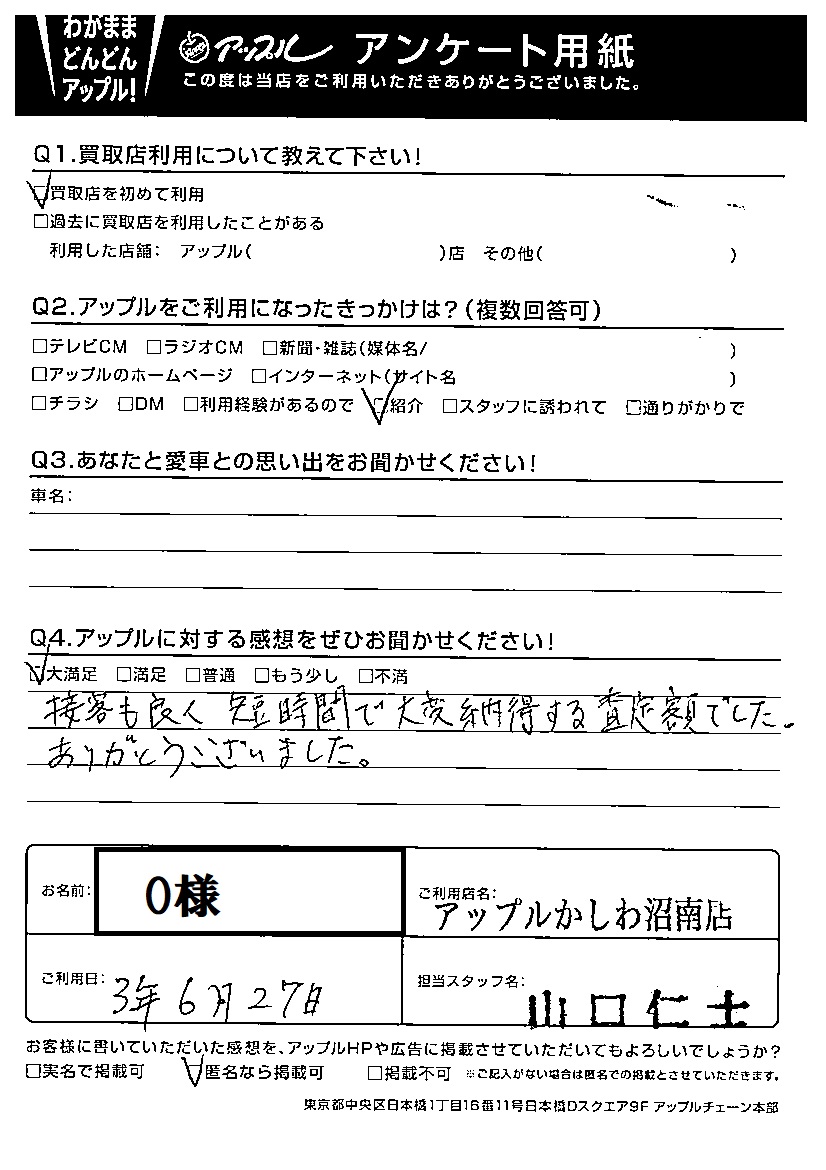 わがまま
どんどん
アップル!
アップル アンケート用紙
この度は当店をご利用いただきありがとうございました。
Q1.買取店利用について教えて下さい!
☑買取店を初めて利用
□過去に買取店を利用したことがある
利用した店舗: アップル( )店 その他( )
Q2.アップルをご利用になったきっかけは?(複数回答可)
□テレビCM □ラジオCM □新聞・雑誌(媒体名/ )
□アップルのホームページ □インターネット(サイト名 )
□チラシ □DM □利用経験があるので ☑紹介 □スタッフに誘われて □通りがかりで
Q3.あなたと愛車との思い出をお聞かせください!
車名:
Q4.アップルに対する感想をぜひお聞かせください!
☑大満足 □満足 □普通 □もう少し □不満
接客も良く 短時間で大変納得する査定額でした。
ありがとうございました。
お名前: O様
ご利用店名:
アップルかしわ沼南店
ご利用日: 3年6月27日
担当スタッフ名: 山口仁士
お客様に書いていただいた感想を、アップルHPや広告に掲載させていただいてもよろしいでしょうか?
□実名で掲載可 ☑匿名なら掲載可 □掲載不可 ※ご記入がない場合は匿名での掲載とさせていただきます。
東京都中央区日本橋1丁目16番11号日本橋Dスクエア9F アップルチェーン本部